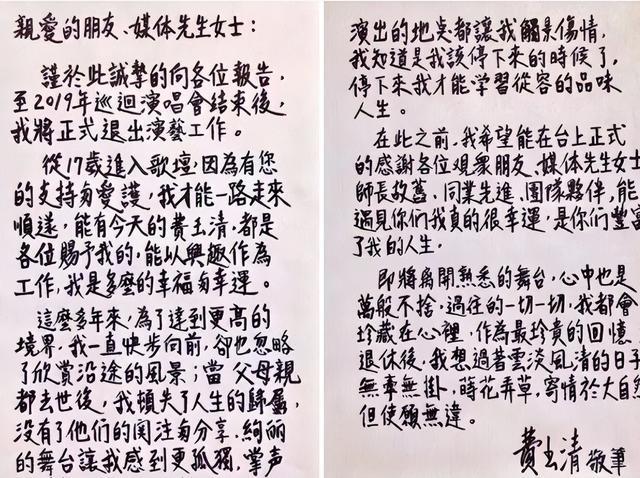 親愛的朋友、媒体先生女士：
謹於此誠摯的向各位報告，
至2019年巡迴演唱會結束後，
我將正式退出演藝工作。
從17歲進入歌壇，因為有您
的支持與愛護，我才能一路走來
順遂，能有今天的費玉清，都是
各位賜予我的，能以興趣作為
工作，我是多麼的幸福與幸運。
這麼多年來，為了達到更高的
境界，我一直快步向前，卻也忽略
了欣賞沿途的風景；當父母親
都去世後，我頓失了人生的歸屬，
沒有了他們的関注與分享，絢麗
的舞台讓我感到更孤獨，掌声
演出的地点都讓我觸景傷情，
我知道是我該停下來的時候了，
停下來我才能学習從容的品味
人生。
在此之前，我希望能在台上正式
的感谢各位观眾朋友、媒体先生女士
師長故舊、同業先進、團隊夥伴，能
遇見你們我真的很幸運，是你們豐富
了我的人生。
即將離開熟悉的舞台，心中也是
萬般不捨，過往的一切一切，我都會
珍藏在心裡，作為最珍貴的回憶
退休後，我想過著雲淡風清的日子
無牽無掛，蒔花弄草，寄情於大自然
但使願無違。
費玉清 敬筆